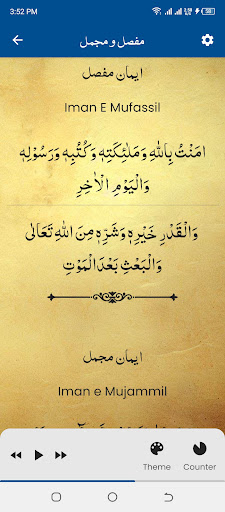 3:52 PM
مفصل و مجمل
ایمان مفصل
Iman E Mufassil
اٰمَنْتُ بِاللهِ وَمَلٰئِكَتِهٖ وَكُتُبِهٖ وَرَسُوْلِهٖ
وَالْيَوْمِ الْاٰخِرِ
وَالْقَدْرِ خَيْرِهٖ وَشَرِّهٖ مِنَ اللهِ تَعَالٰى
وَالْبَعْثِ بَعْدَ الْمَوْتِ
ایمان مجمل
Iman e Mujammil
Theme
Counter